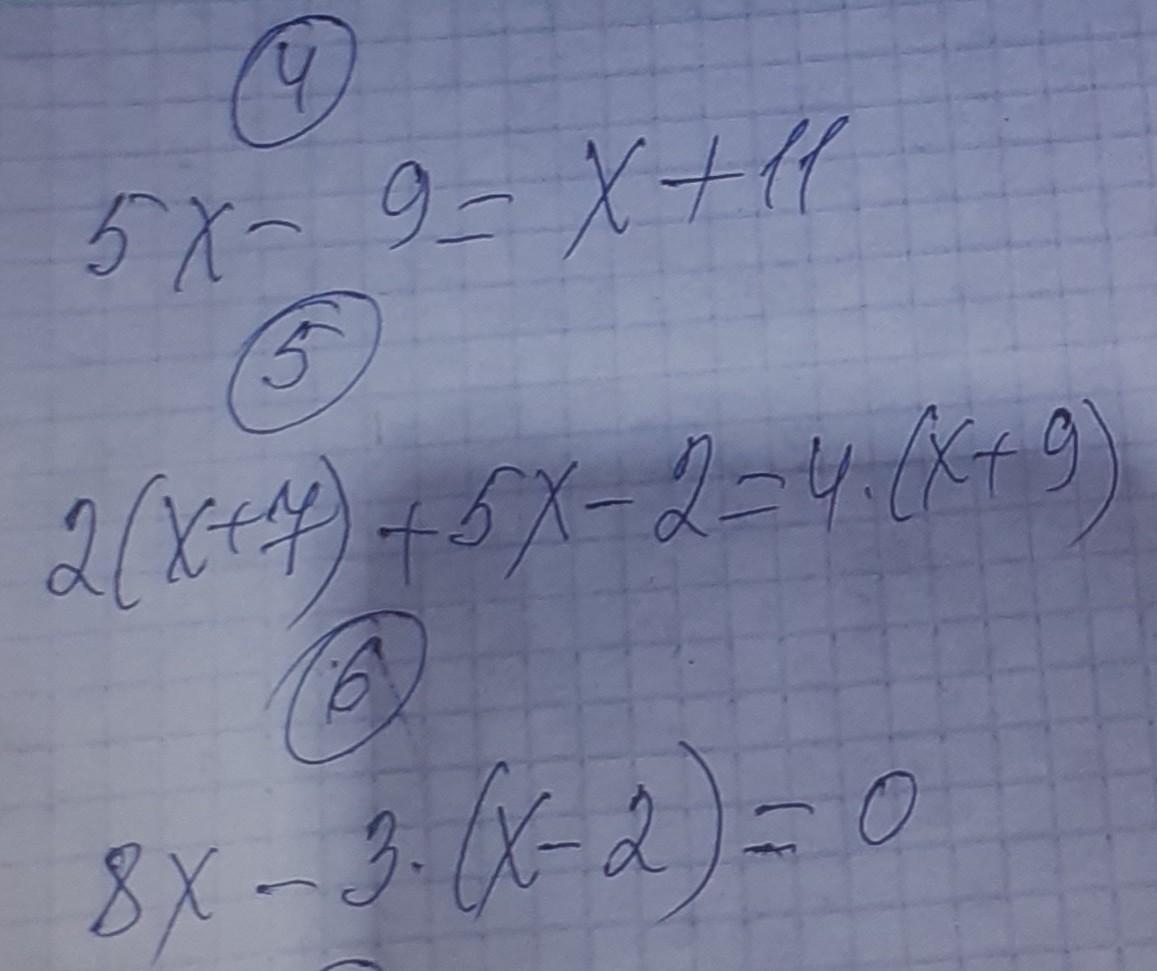 4
5x - 9 = x + 11
5
2(x+7) + 5x - 2 = 4·(x+9)
6
8x - 3·(x-2) = 0